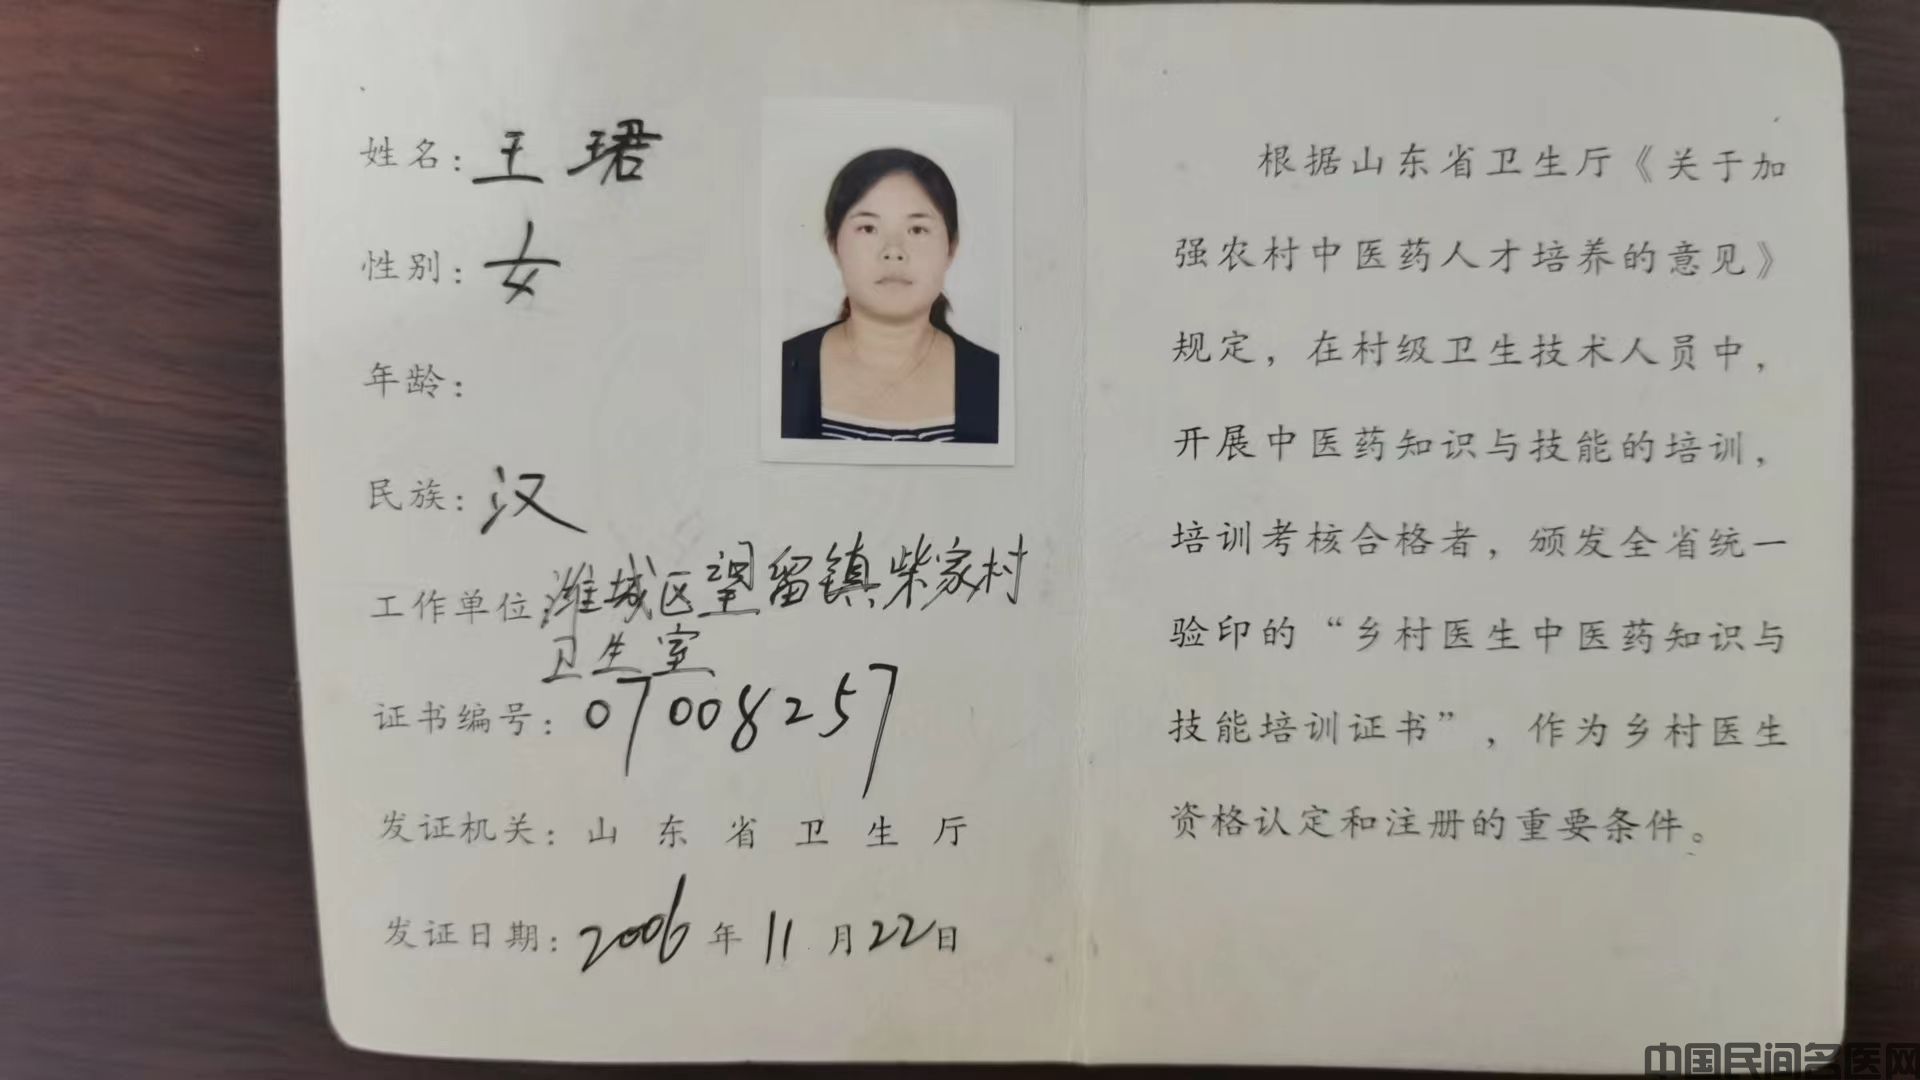 姓名：王珺
性别：女
年龄：
民族：汉
工作单位 潍城区望留镇柴家村
卫生室
证书编号：07008257
发证机关：山东省卫生厅
发证日期：2006年11月22日
根据山东省卫生厅《关于加
强农村中医药人才培养的意见》
规定，在村级卫生技术人员中，
开展中医药知识与技能的培训，
培训考核合格者，颁发全省统一
验印的“乡村医生中医药知识与
技能培训证书”，作为乡村医生
资格认定和注册的重要条件。
中国民间名医网